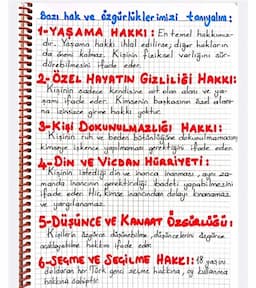 Bazı hak ve özgürlüklerimizi tanıyalım:
1-YAŞAMA HAKKI: En temel hakkımız-
dır. Yaşama hakkı ihlal edilirse, diğer hakların
da önemi kalmaz. Kişinin fiziksel varlığını sür-
dürebilmesini ifade eder.
2-ÖZEL HAYATIN GİZLİLİĞİ HAKKI:
Kişinin sadece kendisine ait olan alanı ve ya-
şamı ifade eder. Kimsenin başkasının özel alanı-
na izinsizce girme hakkı yoktur.
3-Kişi DOKUNULMAZLIĞI HAKKI:
Kişinin ruh ve beden bütünlüğüne dokunulmamasını
kimseye işkence yapılmaması gerektiğini ifade eder.
4-DİN VE VİCDAN HÜRRİYETİ:
Kişinin istediği din ve inanca inanması, aynı za-
manda inancının gerektirdiği ibadeti yapabilmesini
ifade eder. Hiç kimse inancından dolayı kınanamaz
ve yargılanamaz.
5-DÜŞÜNCE VE KANAAT ÖZGÜRLÜĞÜ:
Kişilerin özgürce düşünebilme, düşüncelerini özgürce
açıklayabilme hakkını ifade eder.
6-SEÇME VE SEÇİLME HAKKI: 18 yaşını
dolduran her Türk genci seçme hakkına, oy kullanma
hakkına sahiptir.